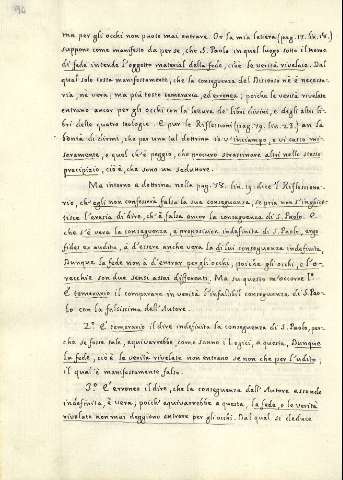 96
ma per gli occhi non puote mai entrare. Or la mia lettera (pag. 17. lin. 18.)
suppone come manifesto da per se, che S. Paolo in quel luogo sotto il nome
di fede intenda l'oggetto material della fede, cioè le verità rivelate. Dal
qual solo costa manifestamente, che la conseguenza del Discorso nè è necessa-
ria, nè vera; ma più tosto temeraria, ed erronea; poiche le verità rivelate
entrano ancor per gli occhi con la lettura de' libri divini, e degli altri li-
bri della sagra teologia. E pur le Riflessioni (pag. 79. lin. 23.) an la
bontà di dirmi, che per una tal dottrina io v'inciampo, e vi casco mi-
seramente, e quel ch'è peggio, che procuro strascinare altri nello stesso
precipizio, cioè, che sono un seduttore.
Ma intorno a dottrina nella pag. 78. lin. 19. dice 'l Riflessiona-
rio, ch'egli non confesserà falsa la sua conseguenza, se pria non s'inghiot-
tisce l'eresia di dire, ch'è falsa ancor la conseguenza di S. Paolo. E
che s'è vera la conseguenza, e proposizion indefinita di S. Paolo, ergo
fides ex auditu, a d'essere anche vera la di lui conseguenza indefinita,
Dunque la fede non à d'entrar per gli occhi, poiche gli occhi, e l'o-
recchie son due sensi assai differenti. Ma su questo m'occorre 1.º
E' temerario il comparare in verità l'infallibil conseguenza di S. Pao-
lo con la falsissima dell'Autore.
2.º E' temerario il dire indefinita la conseguenza di S. Paolo, per-
che se fosse tale, equivarrebbe, come sanno i Logici, a questa, Dunque
la fede, cioè le verità rivelate non entrano se non che per l'udito,
il qual è manifestamente falso.
3.º E' erroneo il dire, che la conseguenza dell'Autore essendo
indefinita, è vera; poich' equivarrebbe a questa, la fede, o le verità
rivelate non mai deggiono entrare per gli occhi. Dal qual si deduce